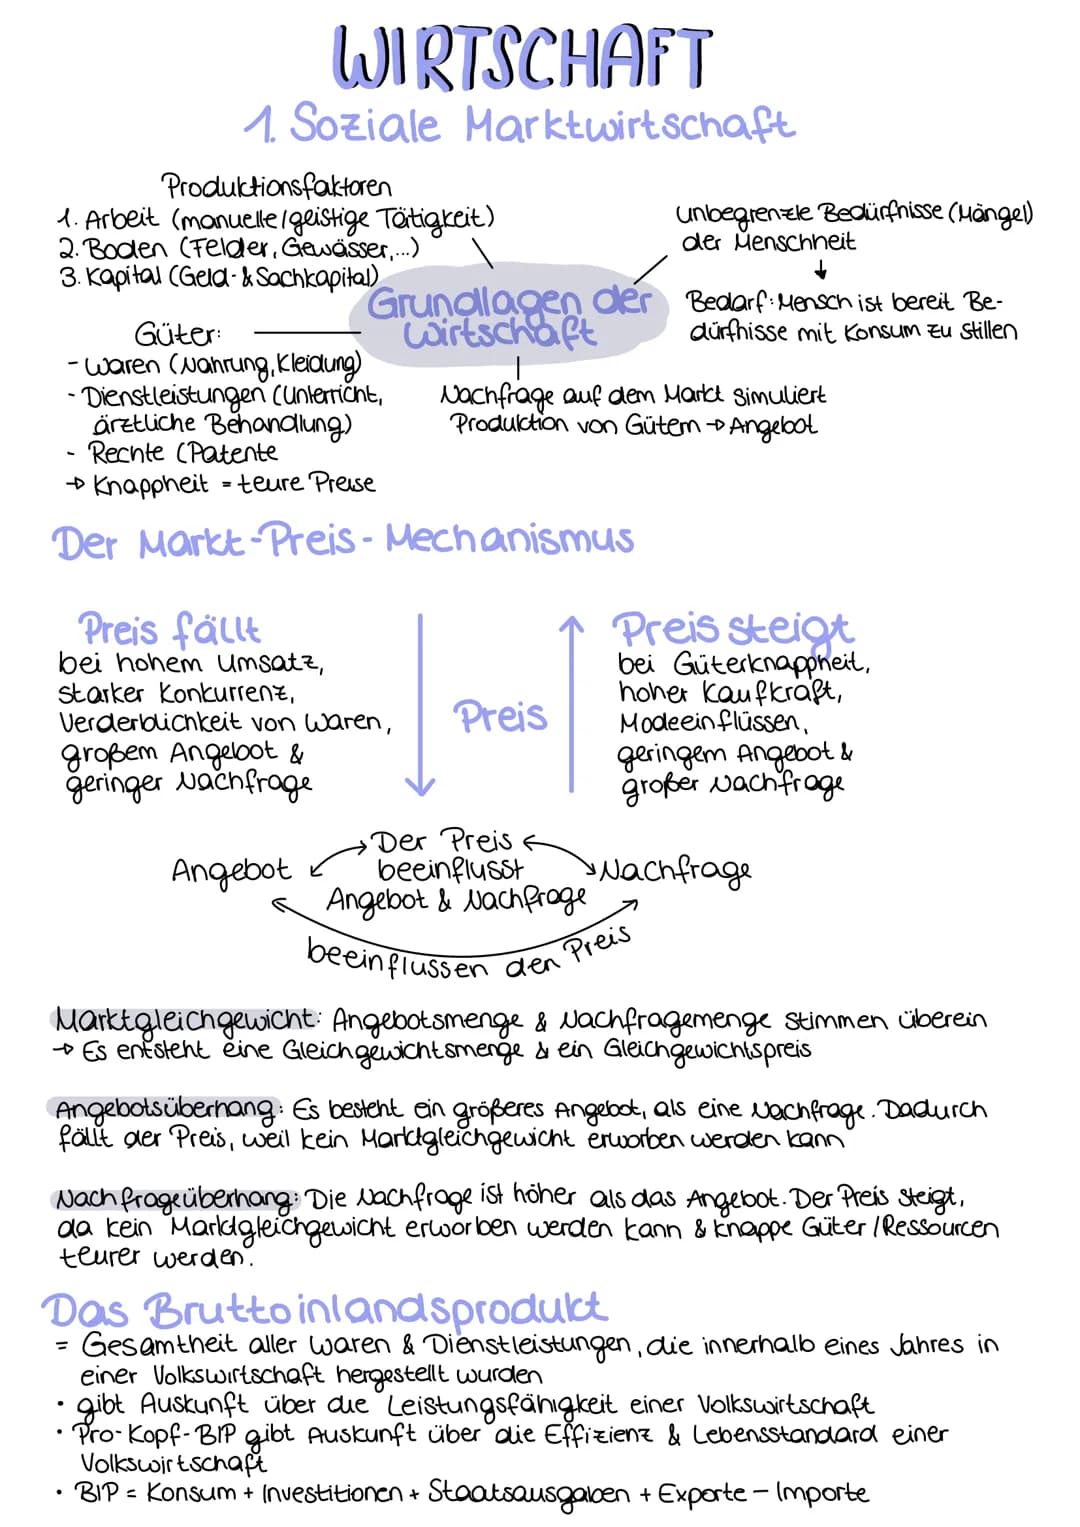 WIRTSCHAFT
1. Soziale Marktwirtschaft
Produktionsfaktoren
1. Arbeit (manuelle/geistige Tätigkeit)
2. Boden (Felder, Gewässer,...)
3. Kapital (Geld- & Sachkapital)
unbegrenzte Bedürfnisse (Mängel)
der Menschheit
↓
Bedarf: Mensch ist bereit Be-
dürfnisse mit Konsum zu stillen
Grundlagen der
Wirtschaft
Güter:
- Waren (Nahrung, Kleidung)
- Dienstleistungen (Unterricht,
ärztliche Behandlung)
- Rechte (Patente
→ Knappheit = teure Preise
Nachfrage auf dem Markt simuliert
Produktion von Gütern → Angebot
Der Markt-Preis-Mechanismus
Preis fällt
bei hohem Umsatz,
starker Konkurrenz,
Verderblichkeit von Waren,
großem Angebot &
geringer Nachfrage
Preis
Preis steigt
bei Güterknappheit,
hoher Kaufkraft,
Modeeinflüssen,
geringem Angebot &
großer Nachfrage
Angebot
Der Preis
beeinflusst
Angebot & Nachfrage
Nachfrage
beeinflussen den Preis
Marktgleichgewicht: Angebotsmenge & Nachfragemenge stimmen überein
→ Es entsteht eine Gleichgewichtsmenge & ein Gleichgewichtspreis
Angebotsüberhang: Es besteht ein größeres Angebot, als eine Nachfrage. Dadurch
fällt der Preis, weil kein Marktgleichgewicht erworben werden kann
Nachfrageüberhang: Die Nachfrage ist höher als das Angebot. Der Preis steigt,
da kein Marktgleichgewicht erworben werden kann & knappe Güter/Ressourcen
teurer werden.
Das Bruttoinlandsprodukt
= Gesamtheit aller Waren & Dienstleistungen, die innerhalb eines Jahres in
einer Volkswirtschaft hergestellt wurden
• gibt Auskunft über die Leistungsfähigkeit einer Volkswirtschaft
• Pro-Kopf-BIP gibt Auskunft über die Effizienz & Lebensstandard einer
Volkswirtschaft
• BIP = Konsum + Investitionen + Staatsausgaben + Exporte - Importe